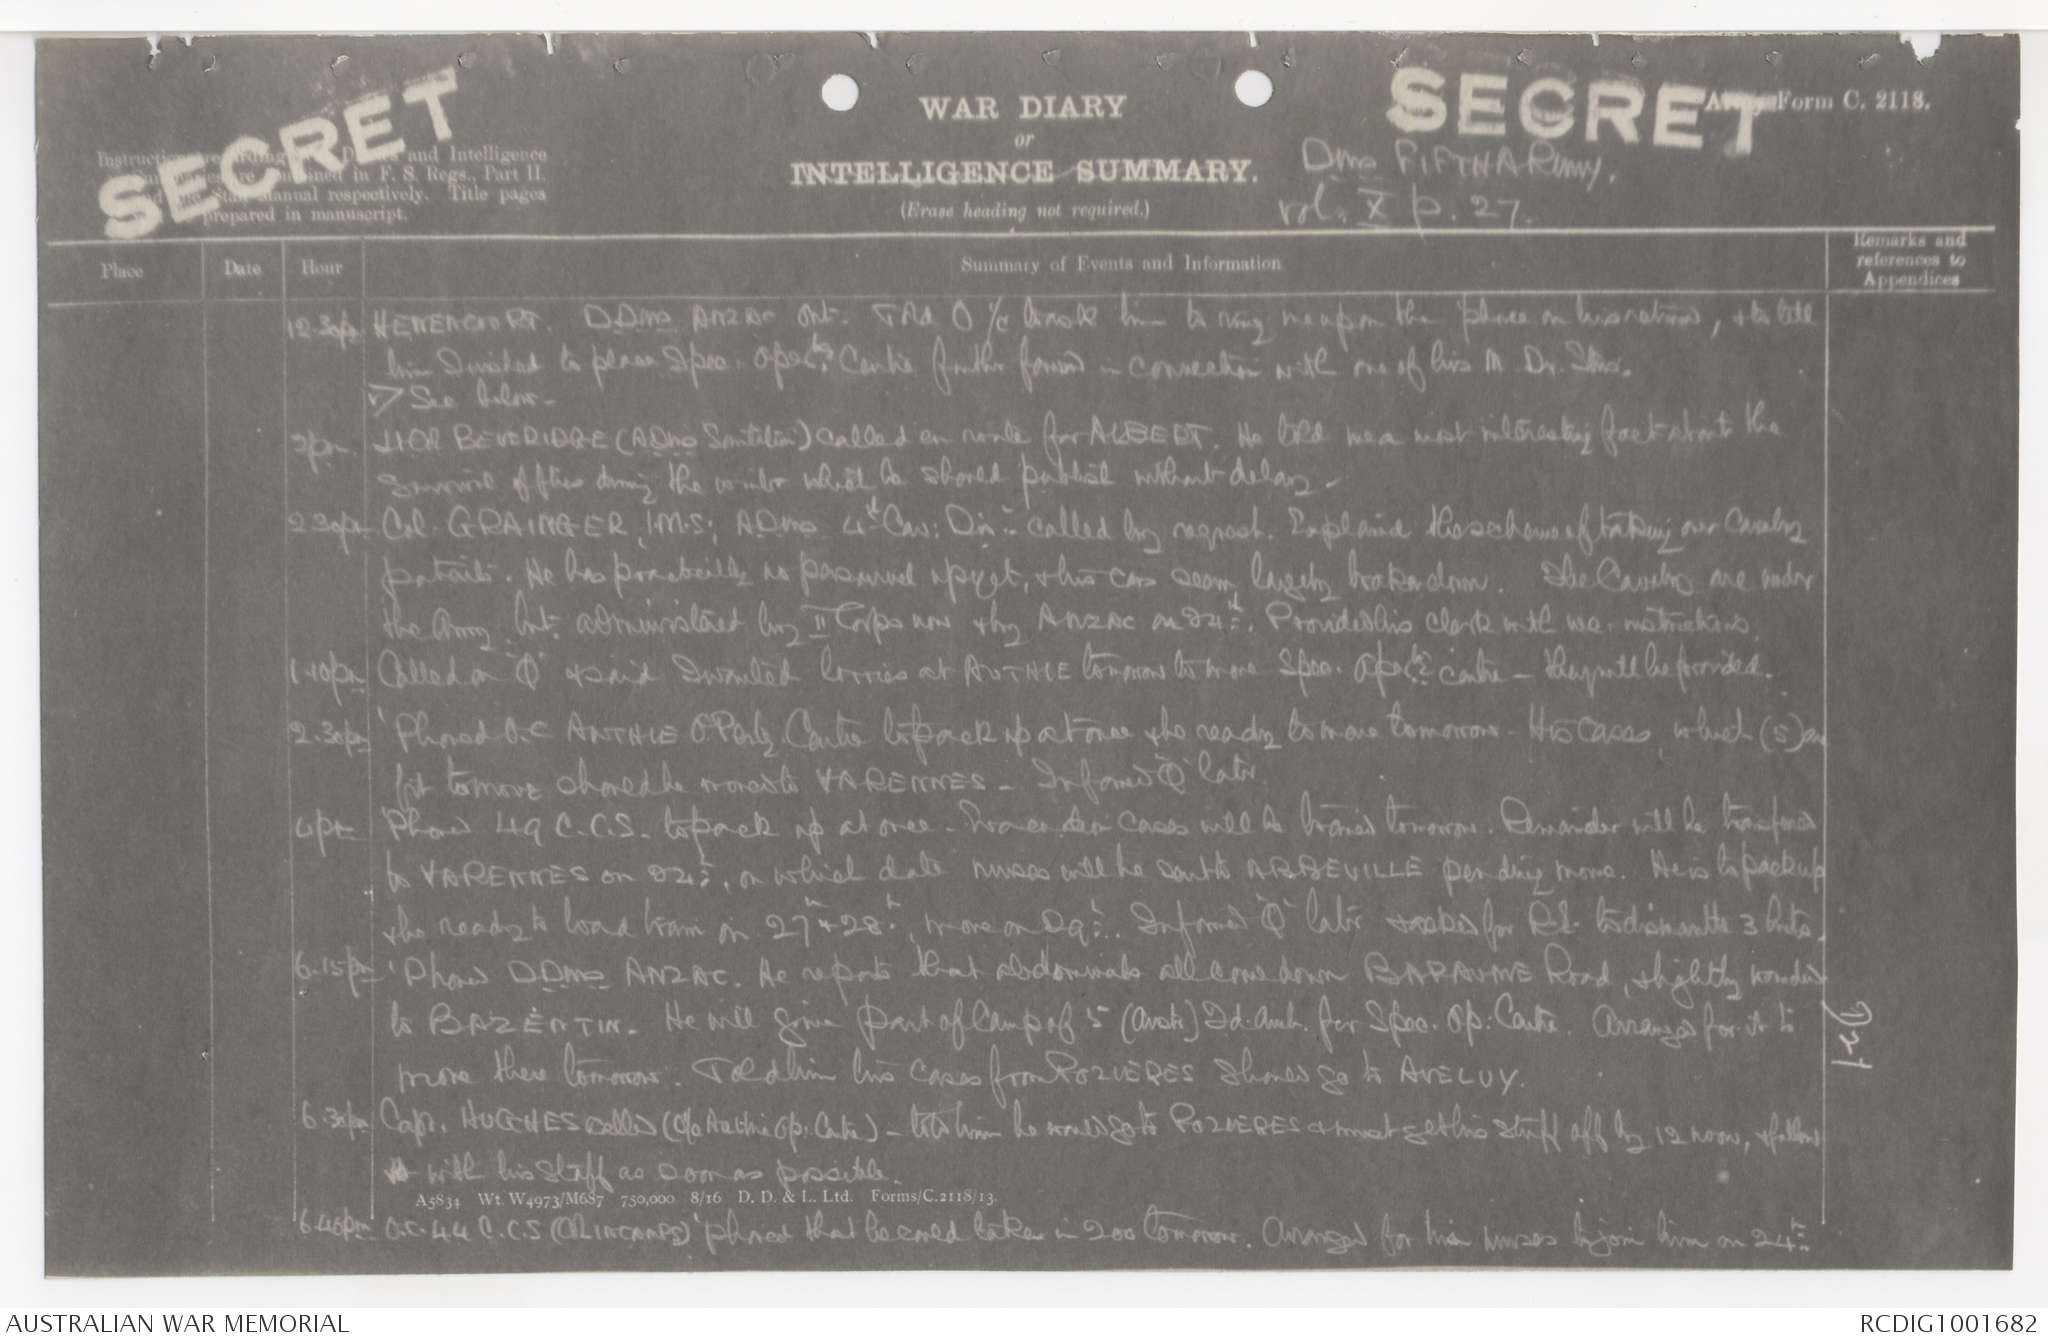 SECRET
SECRET
Army Form C. 2118.
WAR DIARY
or
INTELLIGENCE SUMMARY.
(Erase heading not required.)
Instructions regarding War Diaries and Intelligence
Summaries are contained in F. S. Regs., Part II.
and the Staff Manual respectively. Title pages
prepared in manuscript.
Dms FIFTH ARmy.
vol. X p. 27.
Place
Date
Hour
Summary of Events and Information
Remarks and
references to
Appendices
12.30pm HENENCOURT. DDms ANZAC out. Told O/c to ask him to ring me up on the 'phone on his return, & to tell
him I wished to place Spec. Opertg. Centre further forward in connection with one of his M. Dr. Stns.
See below -
2pm. BEVERIDGE (ADms Sanitation) called en route for ALBERT. He told me a most interesting fact about the
Survival of flies during the winter which he should publish without delay -
2.30pm Col. GRAINGER, I.M.S; ADms 4th Cav: Divn. called by request. Explained the scheme of taking over Cavalry
patients. He has practically no personnel up yet, & his cars seem largely broken down. The Cavalry are under
the Army but administered by II Corps now & by ANZAC on 24th. Provided his clerk with instructions.
1.40pm Called on 'Q' & said I wanted lorries at AUTHIE tomorrow to move Spec. Opertg centre - they will be provided.
2.30pm 'Phoned O.C AUTHIE Centre to pack up at once & be ready to move tomorrow - His cases, which (5) are
fit to move should be moved to VARENNES - Informed 'Q' later.
4pm 'Phoned 49 C.C.S. to pack up at once - cases will be tomorrow. Remainder will be transferred
to VARENNES on 24th, on which date nurses will be sent to ABBEVILLE pending move. He is to pack up
& be ready to load train on 27th & 28th, move on 29th. Informed 'Q' later & asked for R.E. to dismantle 3 huts.
6.15pm 'Phoned DDms ANZAC. He reports that abdominals all come down BAPAUME Road, slightly wounded
to BAZENTIN. He will give part of Camp of 5 (Aust) Fd: Amb. for Spec. Op: Centre. Arranged for it to
move there tomorrow. Told him his cases from POZIERES should go to AVELUY.
6.30pm Capt. HUGHES called (O/c Authie Op: Centre) - told him he would go to POZIERES & must get his stuff off by 12 noon, & follow
with his staff as soon as possible.
A5834 Wt. W4973/M687 750,000 8/16 D. D. & L. Ltd. Forms/C.2118/13.
6.45pm O.C. 44 C.C.S (COLINCAMPS) 'phoned that he could take in 200 tomorrow. Arranged for his nurses to join him on 24th
AUSTRALIAN WAR MEMORIAL
RCDIG1001682